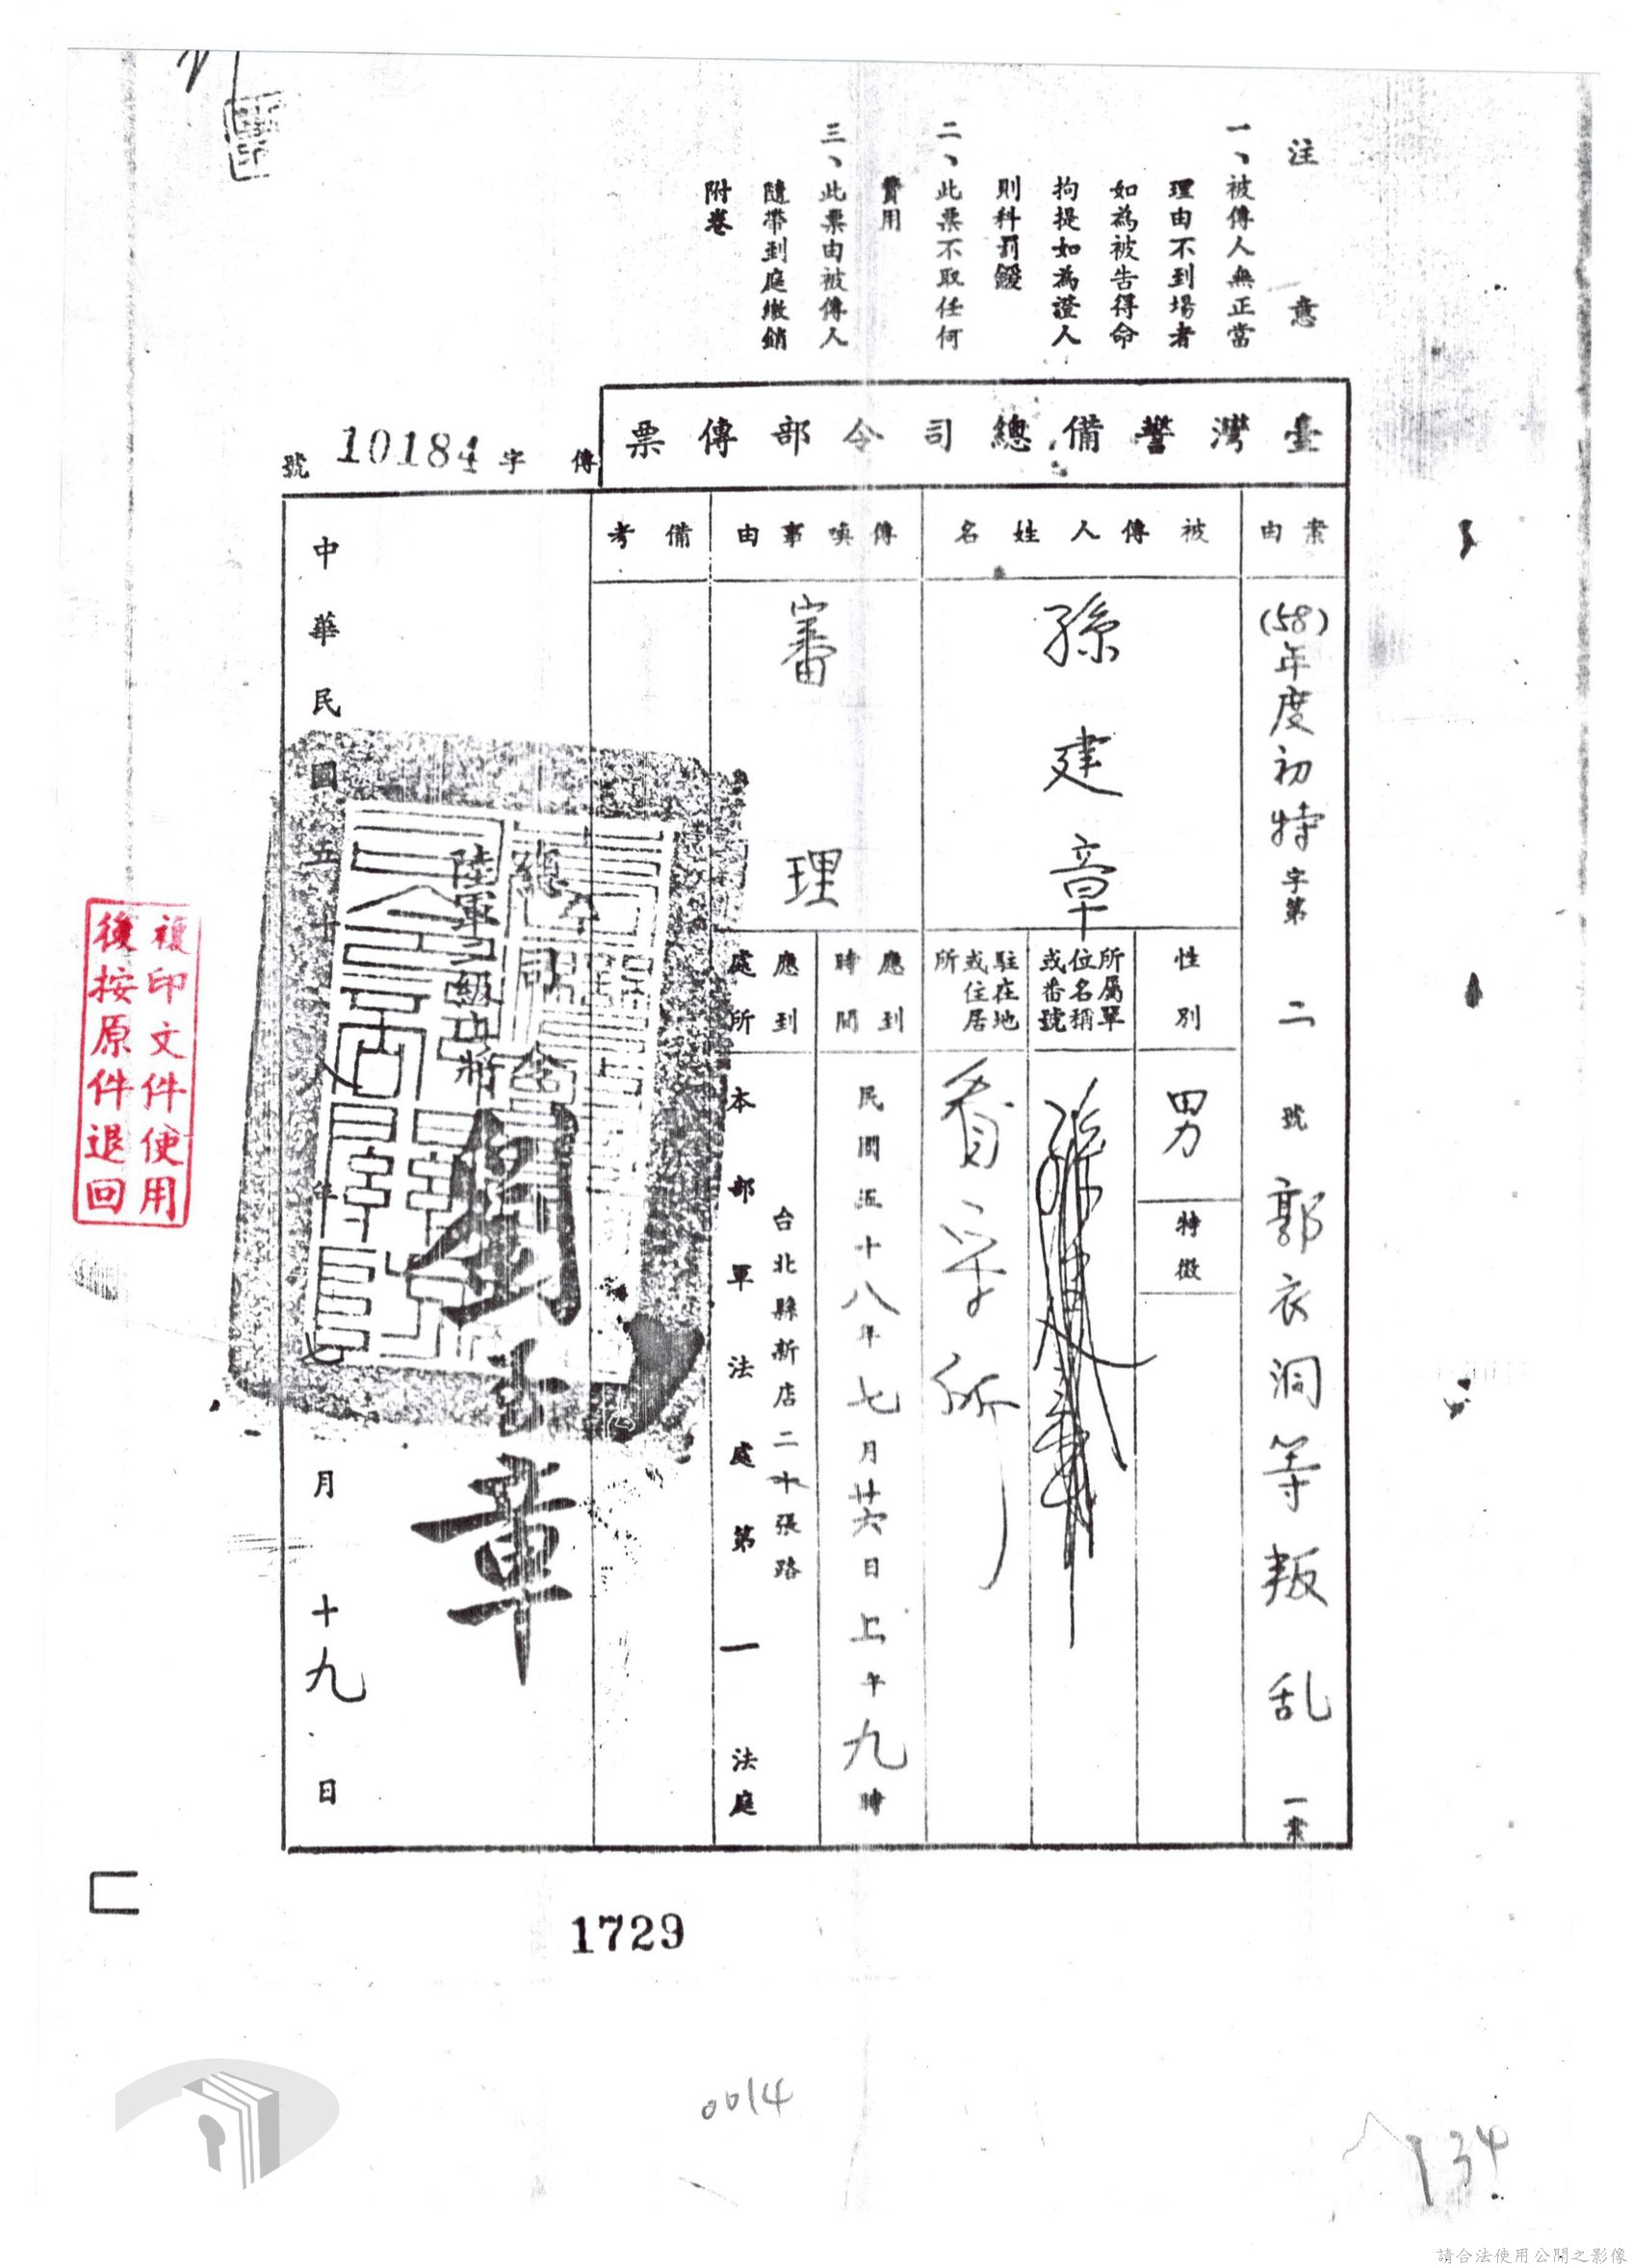 注意
一、被傳人無正當
理由不到場者
如為被告得命
拘提如為證人
則科罰鍰
二、此票不取任何
費用
三、此票由被傳人
隨帶到庭繳銷
附卷
臺灣警備總司令部傳票
傳字 10184 號
案由
(58)年度初特字第二號郭衣洞等叛乱一案
被傳人姓名
孫建章
性別
男
特徵
所屬單
位名稱
或番號
駐在地
或住居
所
看守所
傳喚事由
審理
應到
時間
民國五十八年七月廿六日上午九時
應到
處所
台北縣新店二十張路
本部軍法處第一法庭
備考
總司令
陸軍二級上將
章
中華民國五十八年七月十九日
複印文件使用
後按原件退回
1729
0014
134
請合法使用公開之影像